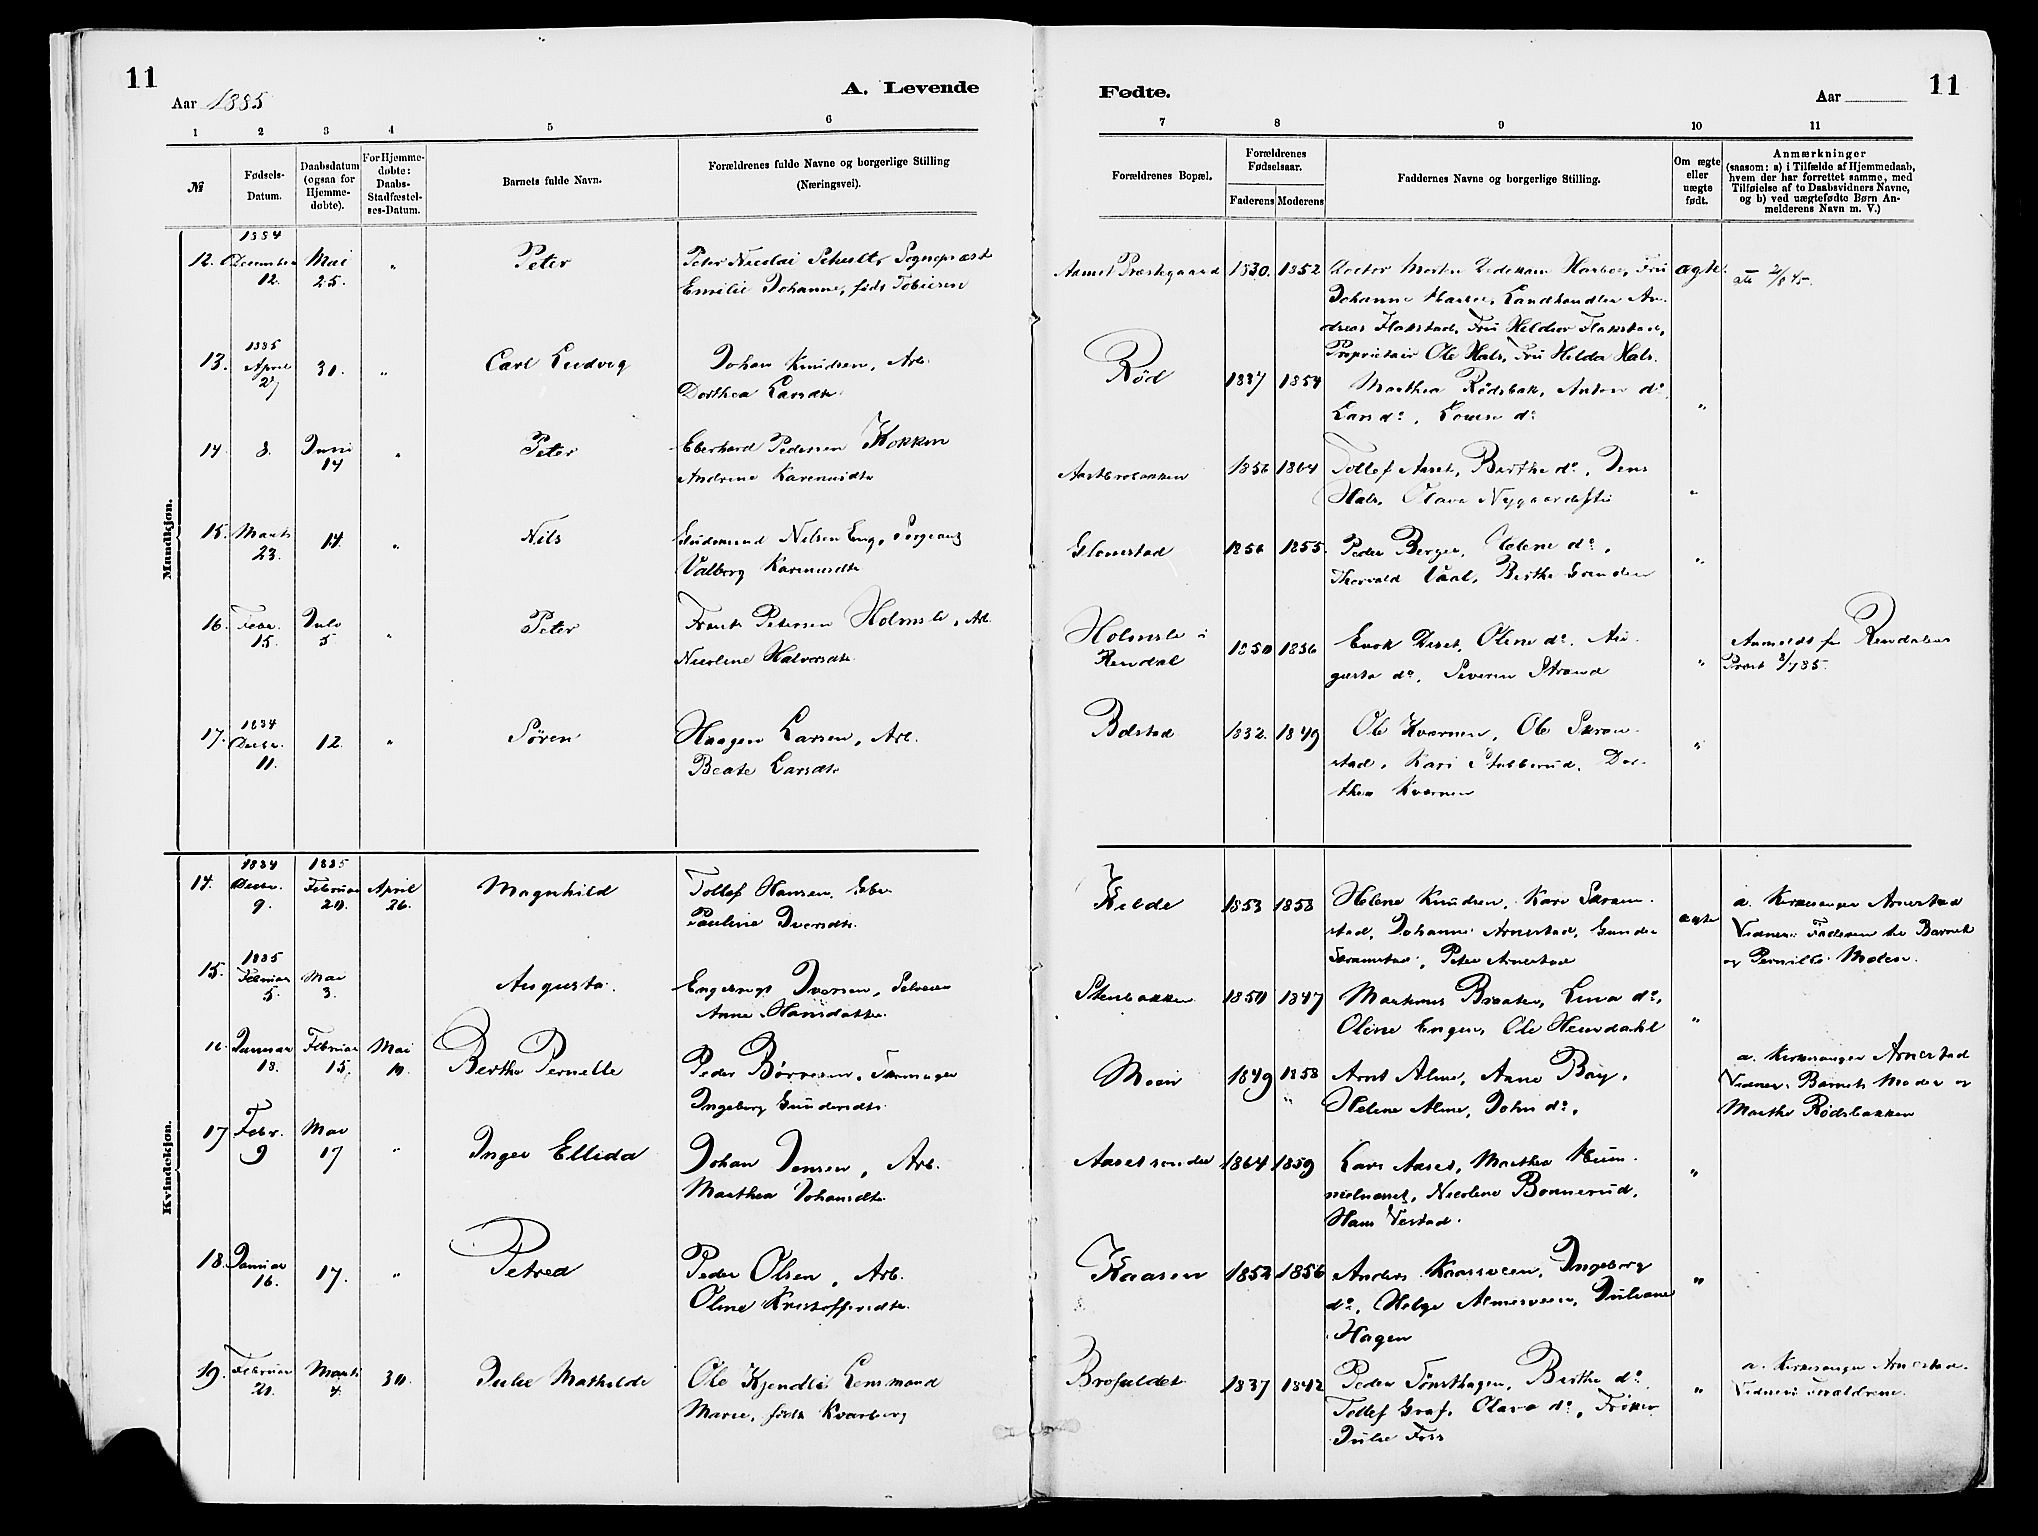 11
Aar 1885
A. Levende
Fødte.
Aar
11
1 2 3 4 5 6 7 8 9 10 11
№
Fødsels-
Datum.
Daabsdatum
(ogsaa for
Hjemme-
døbte).
For Hjemme-
døbte:
Daabs-
Stadfæstel-
ses-Datum.
Barnets fulde Navn.
Forældrenes fulde Navne og borgerlige Stilling
(Næringsvei).
Forældrenes Bopæl.
Forældrenes
Fødselsaar.
Faderens Moderens
Faddernes Navne og borgerlige Stilling.
Om ægte
eller
uægte
født.
Anmærkninger
(saasom: a) i Tilfælde af Hjemmedaab,
hvem der har forrettet samme, med
Tilføielse af to Daabsvidners Navne,
og b) ved uægtefødte Børn An-
melderens Navn m. V.)
Mandkjøn.
1884
12. December 12. Mai 25. " Peter
Peter Nicolai Schultz Sognepræst
Emilie Johanne, født Tobiesen
Aamot Præstegaard 1830. 1852
Doctor Morten Harboe, Fru
Johanne Harboe, Landhandler An-
dreas Flakstad, Fru Flakstad,
Proprietair Ole Hals, Fru Hilda Hals.
ægte.
1885
13. April 27 30. " Carl Ludvig
Johan Knudsen, Arb.
Dorthea Larsdtr
Rød 1837 1854
Marthea Rødsbak, Anton do
Lars do, Lovise do
"
14. 8. Juni 14 " Peter
Eberhard Pedersen Kokken
Andrine Karenusdtr
1856 1864
Tollef Aaset, Berthe do, Jens
Hals, Olava
"
15. Marts 23. 14. " Nils
Gudmund Nilsen Eng,
Valborg Karenusdtr
Glomstad 1856 1855.
Peder Berger, Helene do,
Thorvald Berthe
"
16. Febr. 15. Juli 5 " Peter
Frants Petersen Holmsle, Arb.
Nicoline Halvorsdtr.
Holmsle i
Rendal
1850 1856
Enok Deset, Oline do. Au-
gusta do. Severin Strand
"
Anmeldt for Rendalens
Præst 8/7 85.
1884
17. Decbr. 11. 12. " Søren
Haagen Larsen, Arb.
Beate Larsdtr
Bolstad 1832. 1849
Ole Kværnen, Ole Skram-
stad, Kari Stubberud, Dor-
thea Kværnen
"
Kvindekjøn.
1884 1885
14. Decbr. 9. Februar 20. April 26. Magnhild
Tollef Hansen,
Pauline Iversdtr.
Kilde 1853 1858
Helene Knudsen, Kari Skram-
stad, Johanne Arnestad, Gunder
Skramstad, Peter Arnestad
ægte
a. Kirkesanger Arnestad
Vidner: Faderen til Barnet
og Pernille Moen.
1885
15. Februar 5. Mai 3. Augusta.
Engebregt Iversen, Selveier
Anne Hansdatter
Stenbakken 1850 1847
Martinus Braaten, Lina do,
Oline Engen, Ole Heimdahl
"
16. Januar 18. Februar 15. Mai 10. Berthe Pernille
Peder Børresen, Skomager
Ingeborg Gundersdtr.
Moen 1849 1858
Arnt Alme, Anne Berg,
Helene Alme, John do,
"
a. Kirkesanger Arnestad
Vidner: Barnets Moder og
Marthe Rødsbakken
17 Febr. 9 Mai 17 " Inger Ellida
Johan Jensen, Arb.
Marthea Johansdtr.
Aasetsander 1864 1859
Lars Aaset, Marthea Hum-
melnæset, Nicoline Bonnerud,
Hans Vestad.
"
18. Januar 16. 17. " Petrea
Peder Olsen, Arb.
Oline Kristoffersdtr.
Kaasen 1852 1856
Anders Kaasveen, Ingeborg
do, Helge Almesveen, Juliane
Hagen
"
19. Februar 20. Marts 4. 30. Julie Mathilde
Ole Kjendli Lensmand
Marie, født Kvarberg
Brofaldet 1837 1842
Peder Tønsthagen, Berthe do
Tollef Graf, Olava do, Frøken
Julie Foss
"
a. Kirkesanger Arnestad.
Vidner: Forældrene.